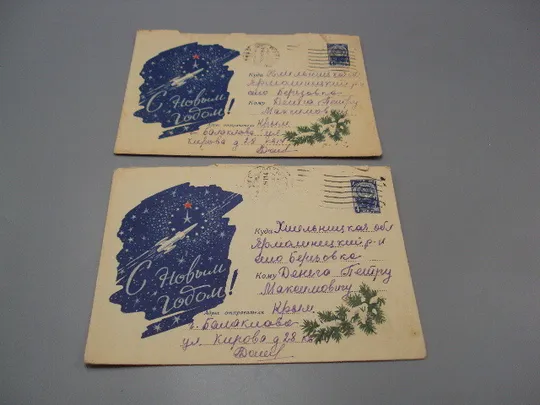 С Новым
Годом!
Куда Хмельницкая обл
Ярмолинецкий р-н
село Берёзовка
Кому Денега Петру
Максимовичу
Адрес отправителя Крым
г. Балаклава ул
Кирова д 28 кв.
С Новым
Годом!
Куда Хмельницкая обл
Ярмолинецкий р-н
село Берёзовка
Кому Денега Петру
Максимовичу
Адрес отправителя Крым
г. Балаклава
ул Кирова д 28 кв